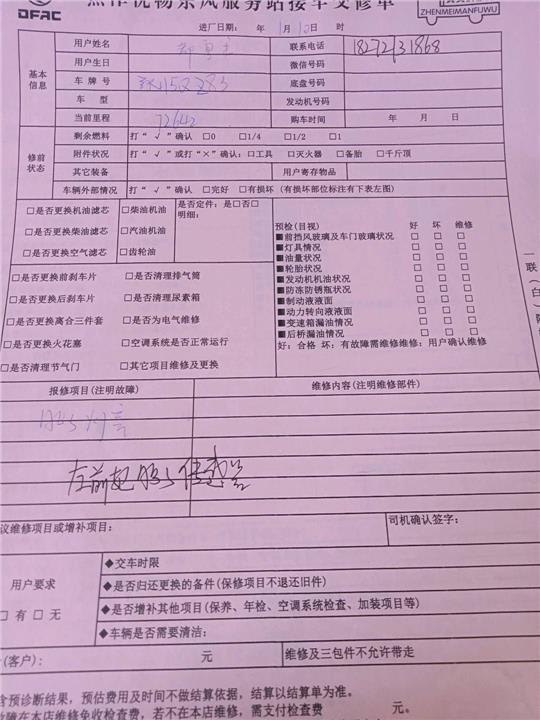 DFAC
ZHENMEIMANFUWU
服务站接车交修单
进厂日期: 年 1月10日 时
基本信息
用户姓名 联系电话 18272131868
用户生日 微信号码
车牌号 底盘号码
车型 发动机号码
当前里程 72642 购车时间 年 月 日
修前状态
剩余燃料 打“√”确认 □0 □1/4 □1/2 □1
附件状况 打“√”或打“×”确认:□工具 □灭火器 □备胎 □千斤顶
其它装备 用户寄存物品
车辆外部情况 打“√”确认 □完好 □有损坏(有损坏部位标注有下表左图)
□是否更换机油滤芯 □柴油机油 是否定件:是□否□
明细:
□是否更换柴油滤芯 □汽油机油
□是否更换空气滤芯 □齿轮油
预检(目视) 好 坏 维修
■前挡风玻璃及车门玻璃状况 □ □ □
■灯具情况 □ □ □
■油量状况 □ □ □
■轮胎状况 □ □ □
■发动机机油状况 □ □ □
■防冻防锈瓶状况 □ □ □
■制动液液面 □ □ □
■动力转向液液面 □ □ □
■变速箱漏油情况 □ □ □
■后桥漏油情况 □ □ □
好:合格 坏:有故障需维修维修:用户确认维修
□是否更换前刹车片 □是否清理排气筒
□是否更换后刹车片 □是否清理尿素箱
□是否更换离合三件套 □是否为电气维修
□是否更换火花塞 □空调系统是否正常运行
□是否清理节气门 □其它项目维修及更换
一联(白)
报修项目(注明故障) 维修内容(注明维修部件)
ABS灯亮
左前轮ABS传感器
议维修项目或增补项目: 司机确认签字:
用户要求
□有 □无
◆交车时限
◆是否归还更换的备件(保修项目不退还旧件)
◆是否增补其他项目(保养、年检、空调系统检查、加装项目等)
◆车辆是否需要清洁:
(客户): 元 维修及三包件不允许带走
含预诊断结果,预估费用及时间不做结算依据,结算以结算单为准。
故障在本店维修免收检查费,若不在本店维修,需支付检查费 元。